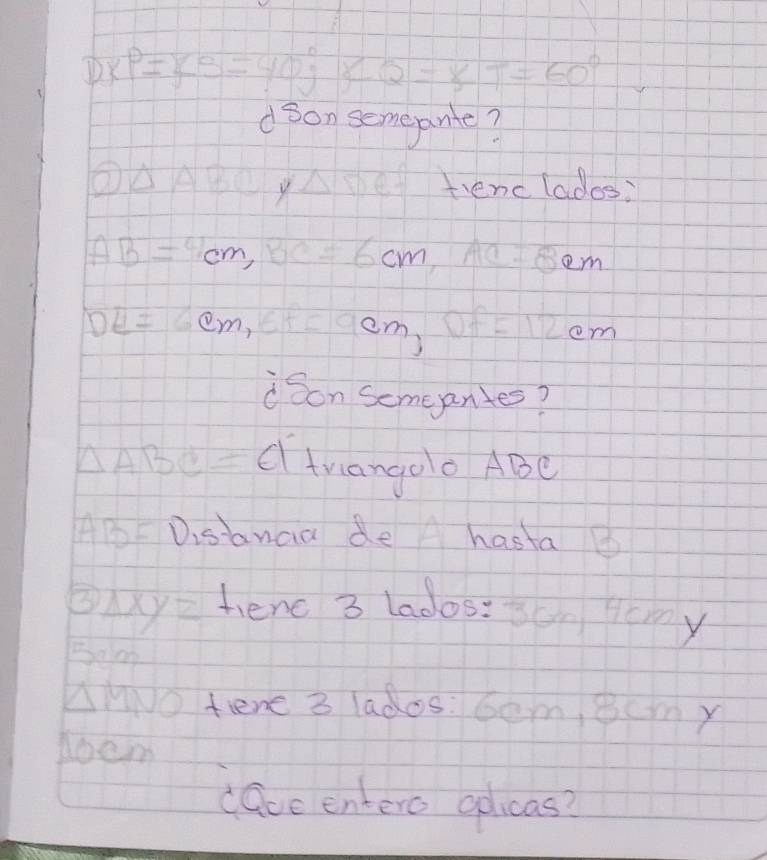 1) ∡P = ∡S = 40°; ∡Q = ∡T = 60°
¿Son semejante?
② △ ABC y △ DEF tiene lados:
AB = 4 cm, BC = 6 cm, AC = 8 cm
DE = 6 cm, EF = 9 cm, DF = 12 cm
¿Son Semejantes?
△ABC = el triangulo ABC
AB = Distancia de A hasta B
③ △XY = tiene 3 lados: 3cm, 4cm y
5cm
△MNO tiene 3 lados: 6cm, 8cm y
10cm
¿Que entero aplicas?